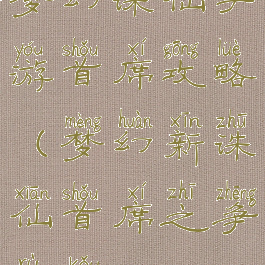 yóu shǒu xí gōng lüè
游首席攻略
mèng huàn xīn zhū
（梦幻新诛
xiān shǒu xí zhī zhēng
仙首席之争